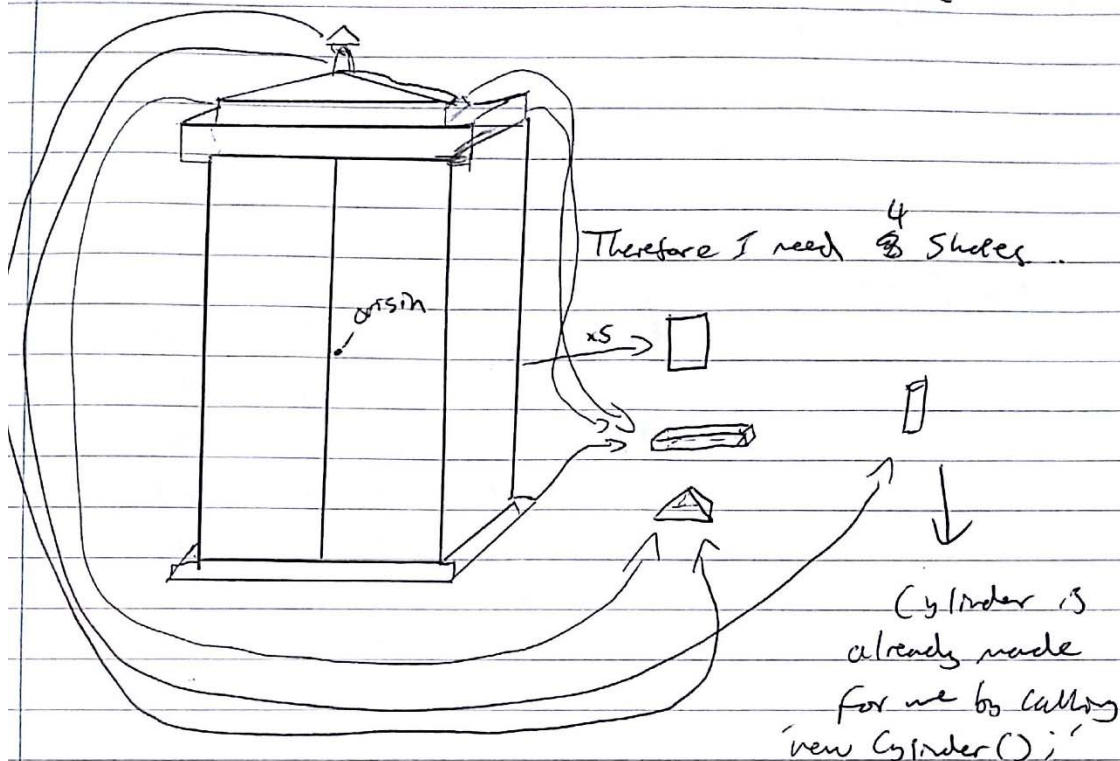 4
Therefore I need Shapes.
origin
x5
Cylinder is
already made
for me by calling
'new Cylinder();'